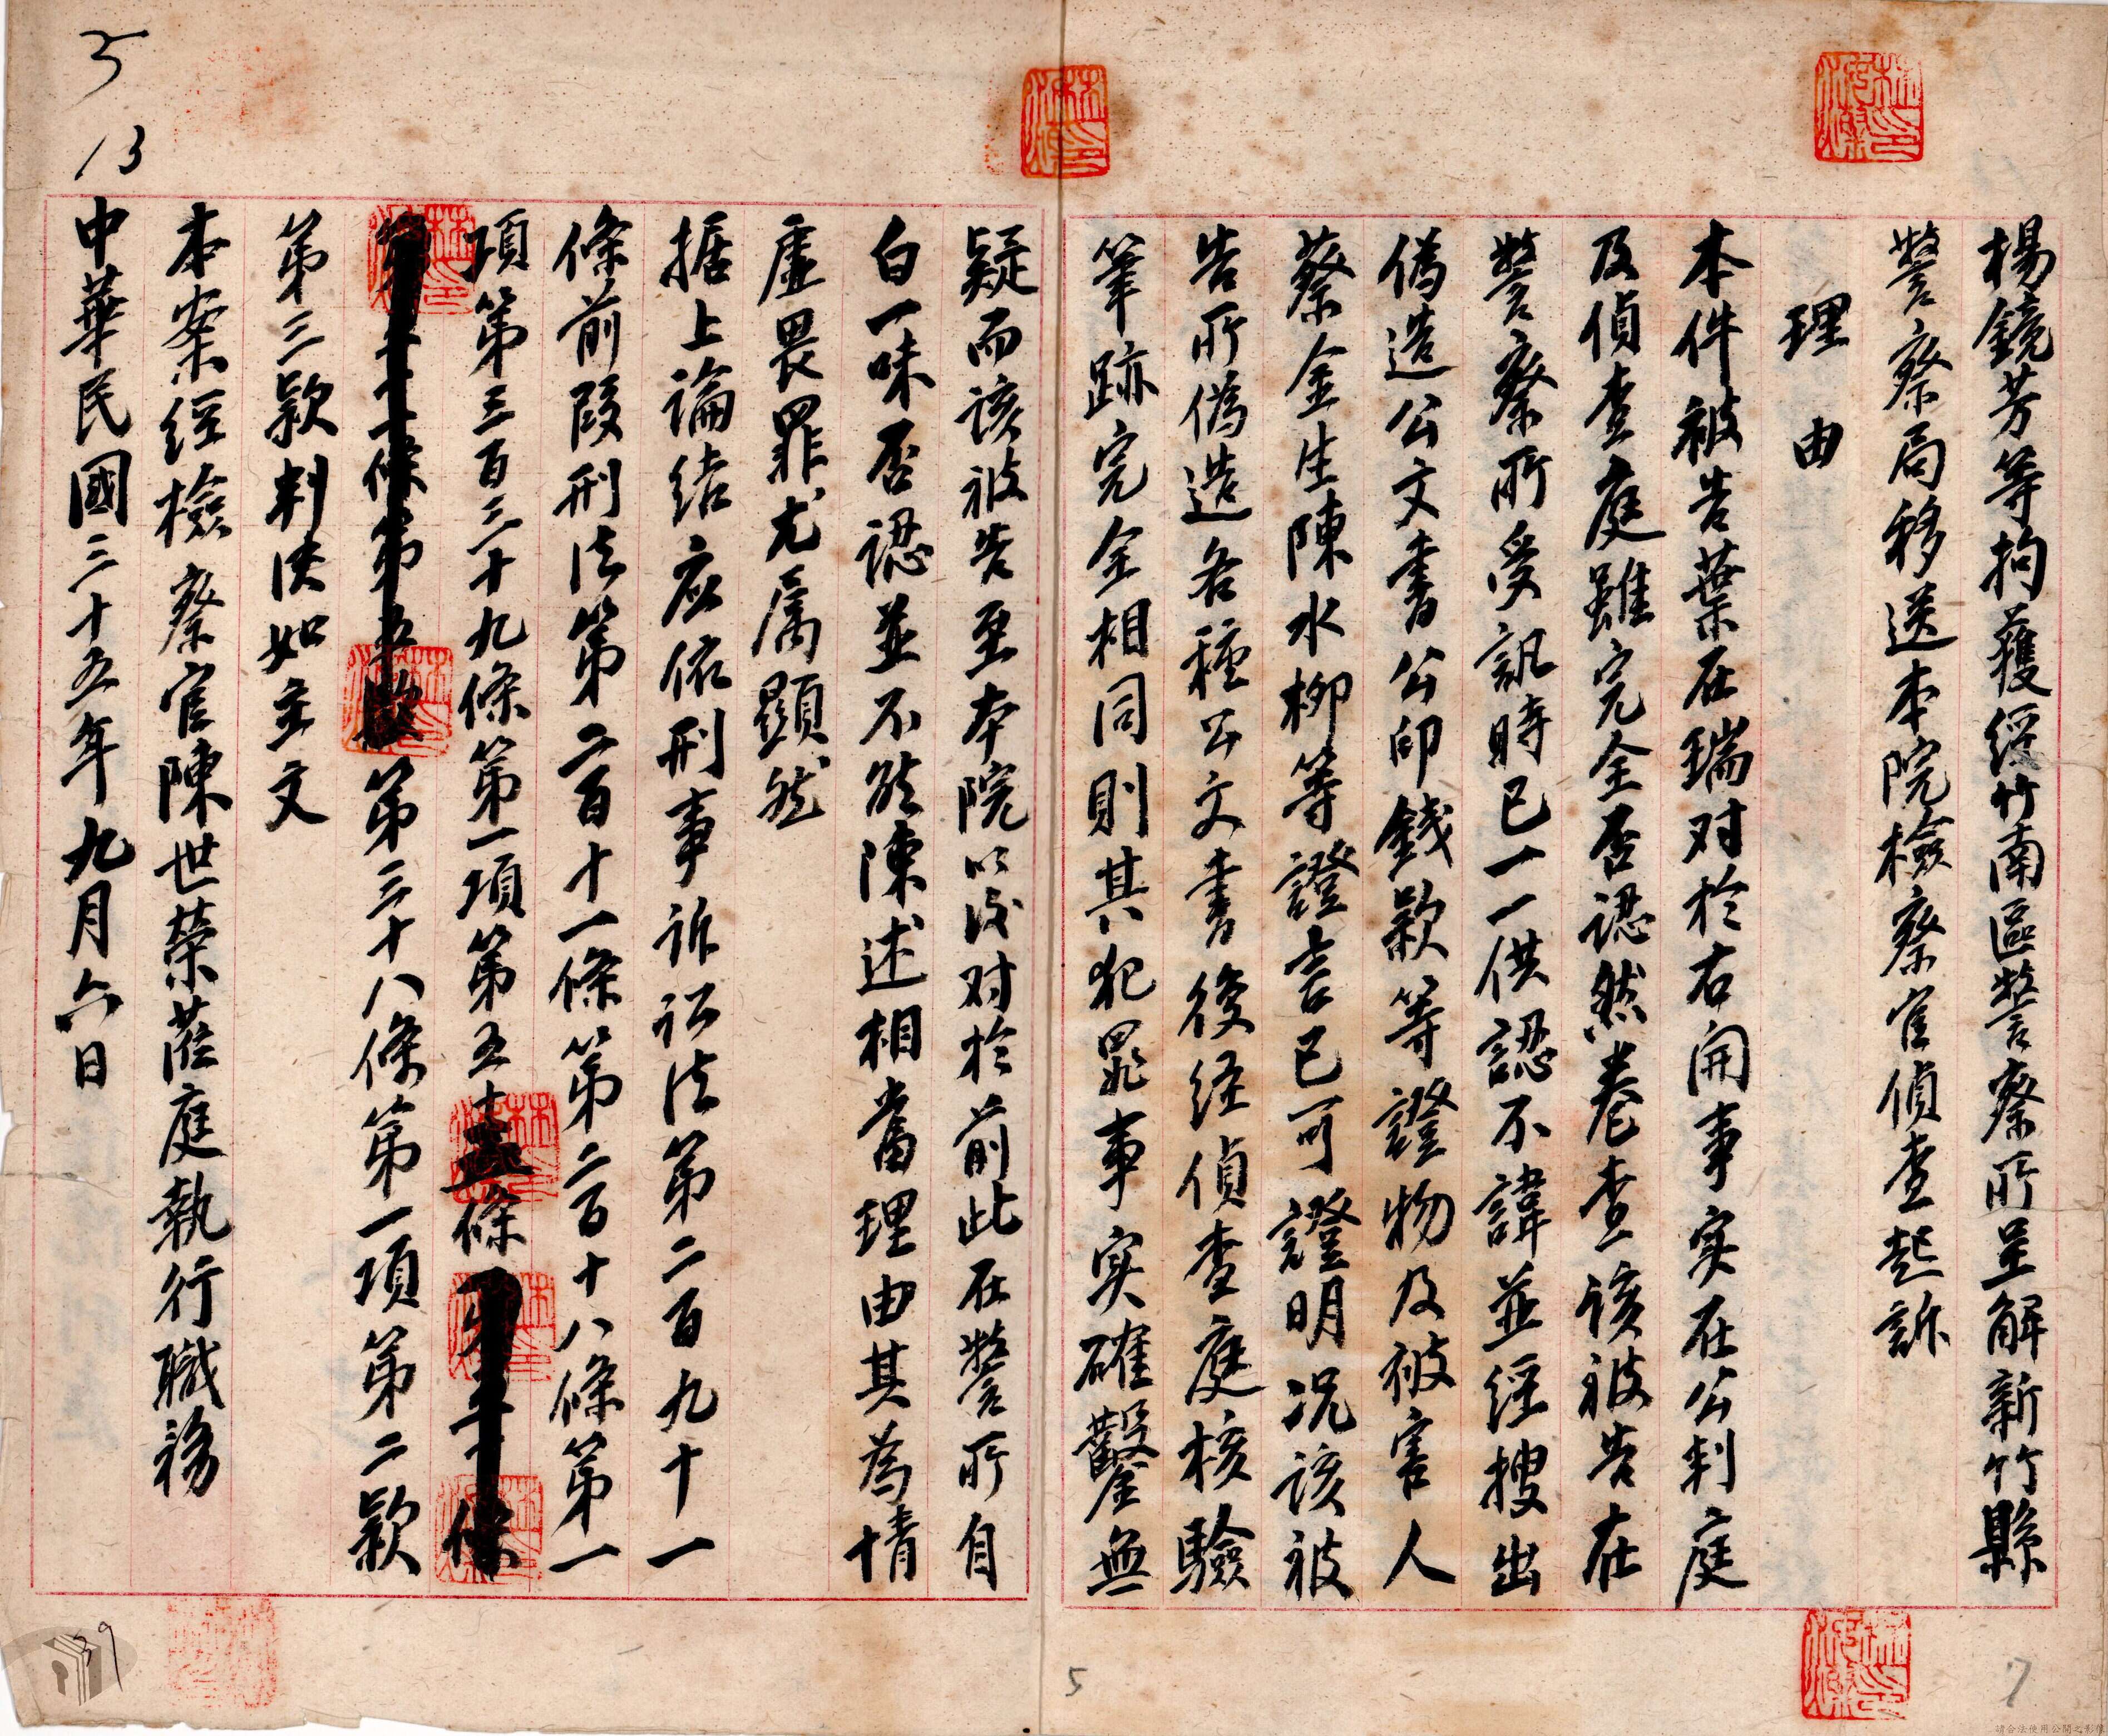 楊鏡芳等拘獲經竹南區警察所呈解新竹縣
警察局移送本院檢察官偵查起訴
理由
本件被告葉在瑞对於右開事实在公判庭
及偵查庭雖完全否認然卷查該被告在
警察所受訊時已一一供認不諱並經搜出
偽造公文書公印錢款等證物及被害人
蔡金生陳水柳等證言已可證明況該被
告所偽造各種公文書後経偵查庭核驗
筆跡完全相同則其犯罪事实確鑿無
疑而該被告至本院以後对於前此在警所自
白一味否認並不能陳述相當理由其為情
虛畏罪尤属顯然
據上論结应依刑事訴訟法第二百九十一
條前段刑法第二百十一條第二百十八條第一
項第三百三十九條第一項第五十條
第三十八條第一項第二款
第三款判决如主文
本案经檢察官陳世荣蒞庭執行職務
中華民國三十五年九月六日
5
13
39
5
7
請合法使用公開之影像